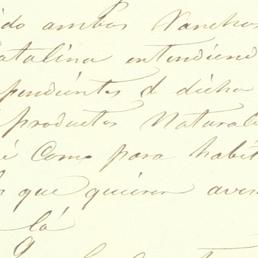 ido ambos Ranchos
atalina entendiend
pendientes d dicha
productos Natural
é Como para habit
que quieran aven
la